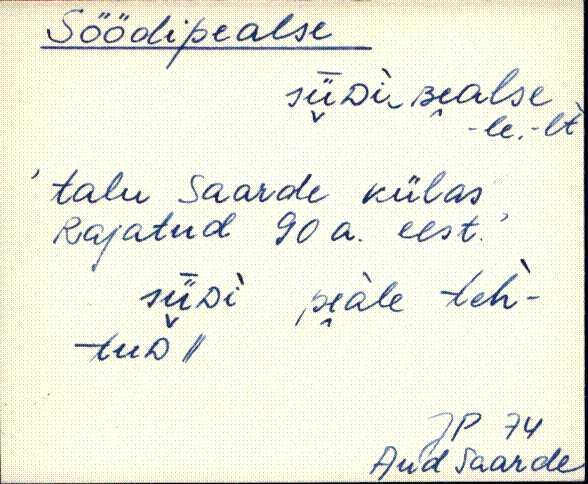 Söödipealse
sǖ̬ᴅì ʙe̮alse
-le, -lt
'talu Saarde külas
Rajatud 90 a. eest.'
sǖ̬ᴅì pe̮àle teh̀-
tuᴅ //
JP 74
Aud Saarde